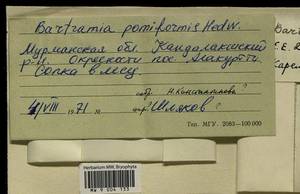 Bartramia pomiformis Hedw.
Мурманская обл. Кандалакшский
р-н. Окрестности пос. Алакуртти
Сопка в лесу.
соб. Н. Константинова
4/VIII 1971 г. опр. Шляков
Тип. МГУ. 2083—100 000
Bart
E.E.
Карел
Herbarium MW, Bryophyta
MW 9 004 133